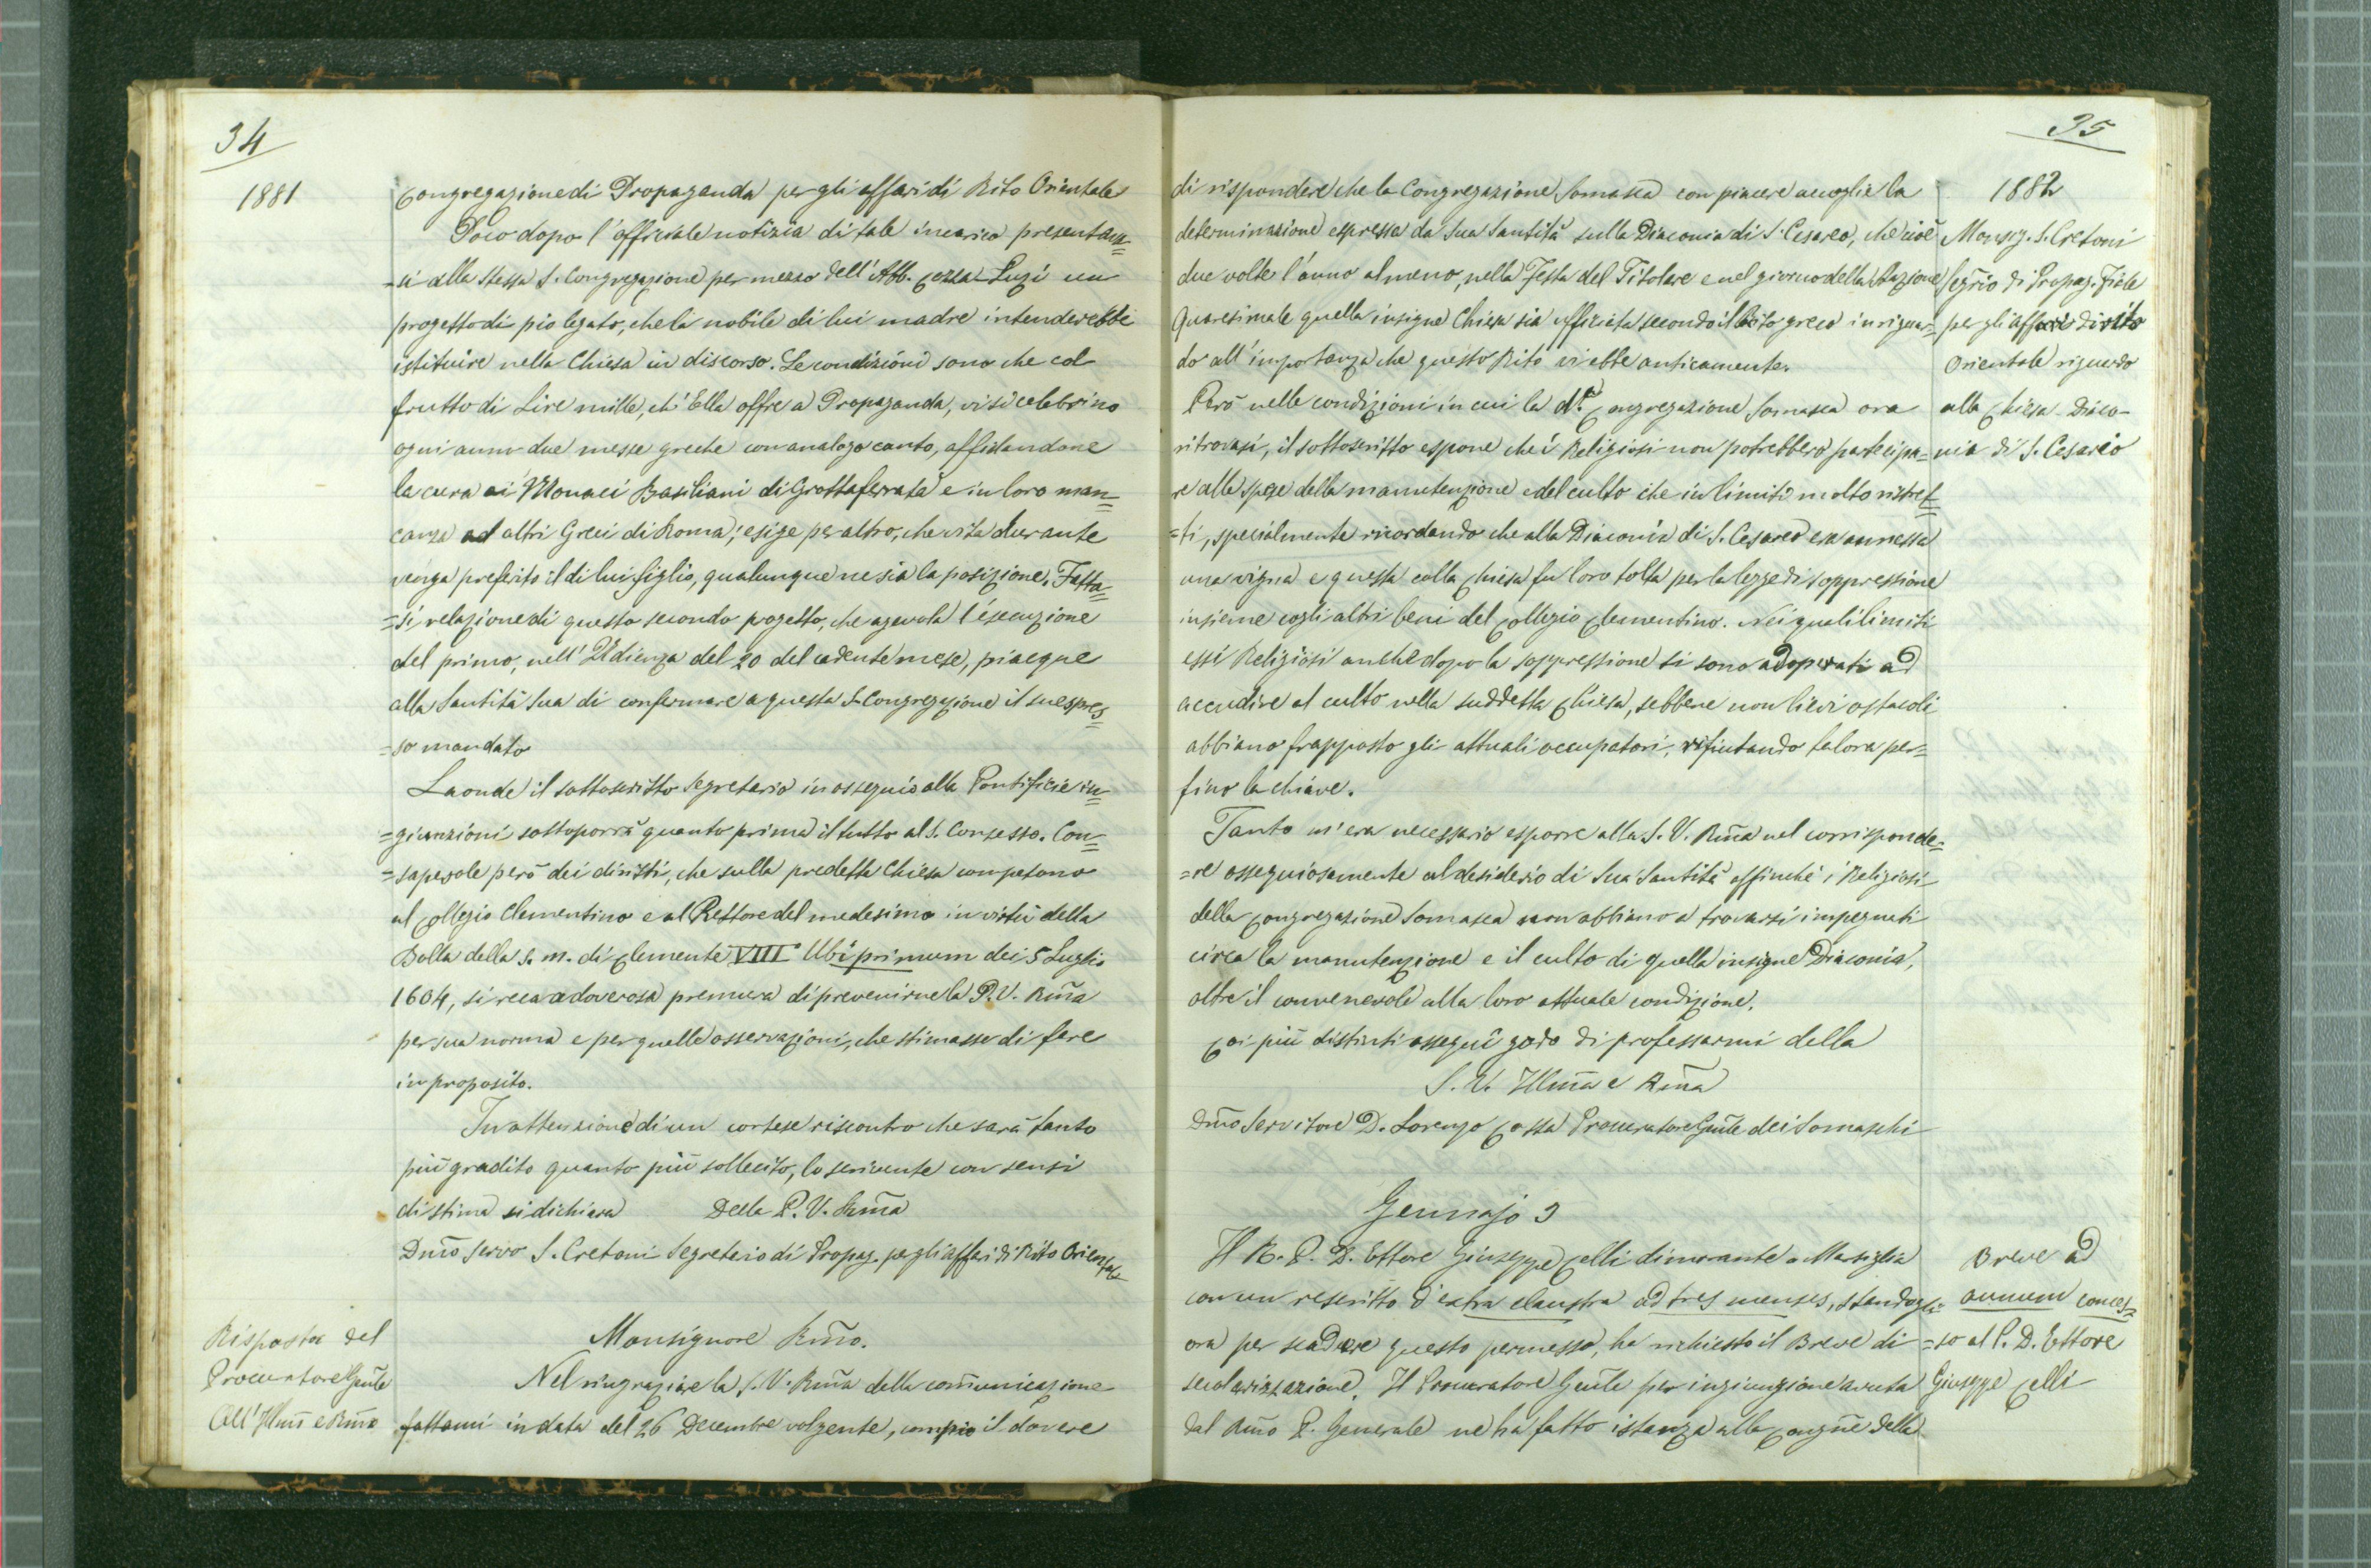 34
1881
Congregazione di Propaganda per gli affari di Rito Orientale
Poco dopo l'officiale notizia di tale incarico presentava=
=si alla stessa S. Congregazione per mezzo dell'Abb. Cozza-Luzi un
progetto di pio legato, che la nobile di lui madre intenderebbe
istituire nella Chiesa in discorso. Le condizioni sono che col
frutto di Lire mille, ch'Ella offre a Propaganda, vi si celebrino
ogni anno due messe greche con analogo canto, affidandone
la cura ai Monaci Basiliani di Grottaferrata e in loro man=
canza ad altri Greci di Roma; esige per altro, che vita durante
venga preferito il di lui figlio, qualunque ne sia la posizione. Fatta=
=si relazione di questo secondo progetto, che agevola l'esecuzione
del primo, nell'Udienza del 20 del cadente mese, piacque
alla Santità Sua di confermare a questa S. Congregazione il suespres=
=so mandato
Laonde il sottoscritto Segretario in ossequio alla Pontificie in=
=giunzioni sottoporrà quanto prima il tutto al S. Consesso. Con=
=sapevole però dei diritti, che sulla predetta Chiesa competono
al Collegio Clementino e al Rettore del medesimo in virtù della
Bolla della s. m. di Clemente VIII Ubi primum dei 5 Luglio
1604, si reca a doverosa premura di prevenirne la P. V. Rm̃a
per sua norma e per quelle osservazioni, che stimasse di fare
in proposito.
In attenzione di un cortese riscontro che sarà tanto
più gradito quanto più sollecito, lo scrivente con sensi
di stima si dichiara Della P. V. Rm̃a
Dm̃o Servo S. Cretoni Segretario di Propag. pe gli affari di Rito Orientale
Risposta del
Procuratore Gñle
All'Illm̃ e Rm̃o
Monsignore Rm̃o.
Nel ringraziare la S. V. Rm̃a della com̃unicazione
fattami in data del 26 Decembre volgente, compio il dovere
35
1882
di rispondere che la Congregazione Somasca con piacere accoglie la
determinazione espressa da Sua Santità sulla Diaconia di S. Cesareo, che cioè
due volte l'anno almeno, nella Festa del Titolare e nel giorno della Stazione
Quaresimale quella insigne Chiesa sia officiata secondo il Rito greco in riguar=
do all'importanza che questo Rito vi ebbe anticamente.
Però nelle condizioni in cui la d.ª Congregazione Somasca ora
ritrovasi, il sottoscritto espone che i Religiosi non potrebbero partecipa=
re alle spese della manutenzione e del culto che in limiti molto ristret=
=ti, specialmente ricordando che alla Diaconia di S. Cesareo era annessa
una vigna e questa colla Chiesa fu loro tolta per la legge di soppressione
insieme cogli altri beni del Collegio Clementino. Nei quali limiti
essi Religiosi anche dopo la soppressione si sono adoperati ad
accudire al culto nella suddetta Chiesa, sebbene non lievi ostacoli
abbiano frapposto gli attuali occupatori, rifiutando talora per=
fino la chiave.
Tanto m'era necessario esporre alla S. V. Rm̃a nel corrisponde=
=re ossequiosamente al desiderio di Sua Santità affinchè i Religiosi
della Congregazione Somasca non abbiano a trovarsi impegnati
circa la manutenzione e il culto di quella insigne Diaconia,
oltre il convenevole alla loro attuale condizione.
Coi più distinti ossequi godo di professarmi della
S. V. Illm̃a e Rm̃a
Dm̃o Servitore D. Lorenzo Cossa Procuratore Gñle dei Somaschi
Monsig. S. Cretoni
Segr̃io di Propag. Fide
per gli affari di rito
Orientale riguardo
alla Chiesa-Diaco-
nia di S. Cesareo
Gennajo 3
Il R. P. D. Ettore Giuseppe Celli dimorante a Marsiglia
con un rescritto d'extra claustra ad tres menses, standogli
ora per scadere questo permesso, ha richiesto il Breve di
secolarizzazione. Il Procuratore Gen̂le per ingiunzione avuta
dal Rm̃o P. Generale ne ha fatto istanza alla Congñe della
Breve ad
annum conces=
=so al P. D. Ettore
Giuseppe Celli